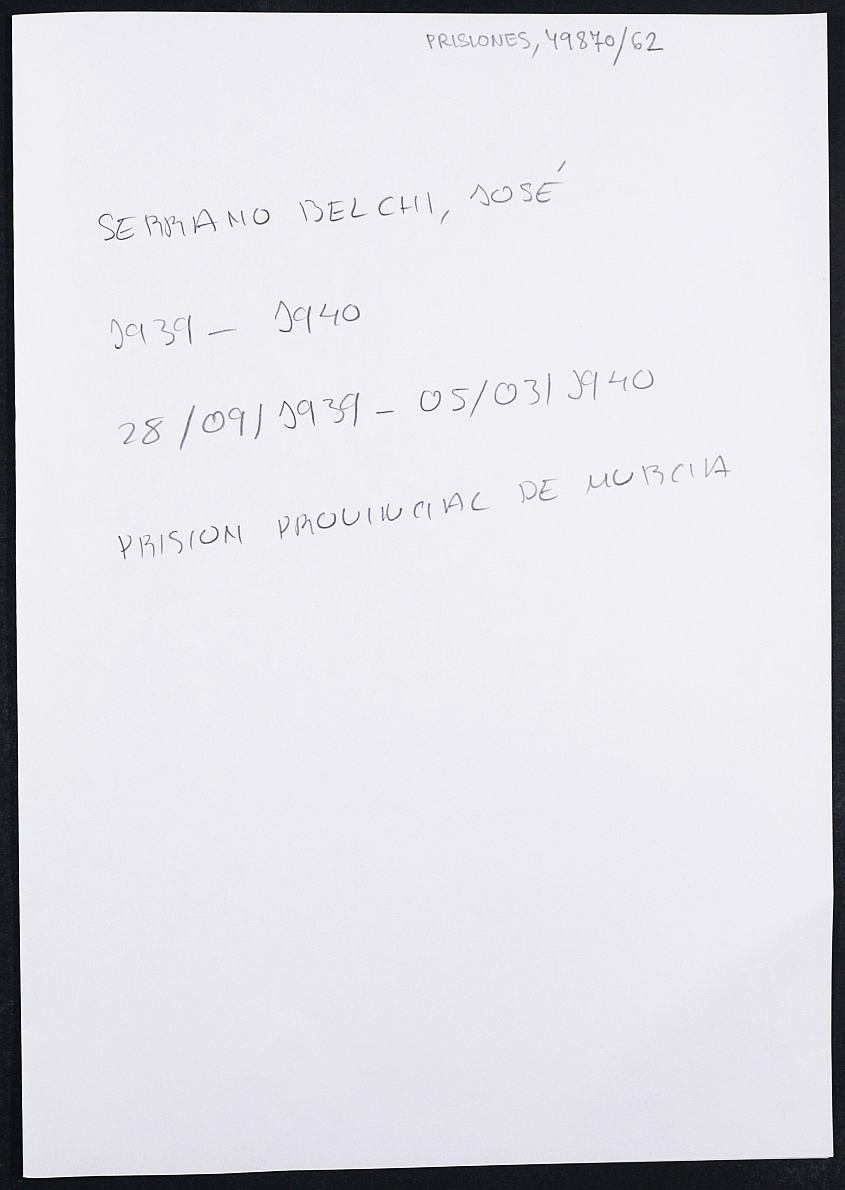 PRISIONES, 49870/62
SERRANO BELCHI, JOSÉ
1939 - 1940
28/09/1939 - 05/03/1940
PRISION PROVINCIAL DE MURCIA